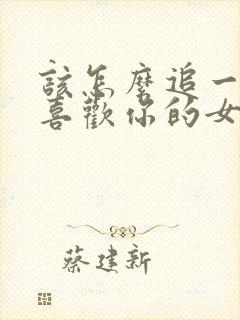 該怎麼追一
喜歡你的女
蔡建新